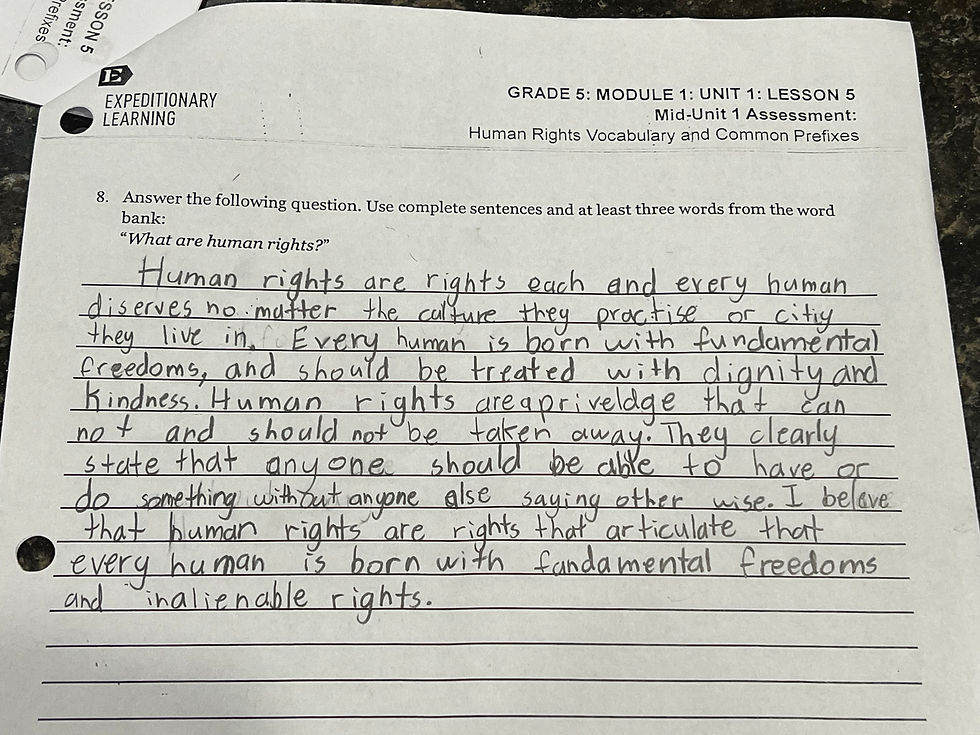 SSON 5
sment:
refixes
E
EXPEDITIONARY
LEARNING
GRADE 5: MODULE 1: UNIT 1: LESSON 5
Mid-Unit 1 Assessment:
Human Rights Vocabulary and Common Prefixes
8. Answer the following question. Use complete sentences and at least three words from the word
bank:
“What are human rights?”
Human rights are rights each and every human
diserves no matter the culture they practise or citiy
they live in. Every human is born with fundamental
freedoms, and should be treated with dignity and
kindness. Human rights are a priveldge that can
not and should not be taken away. They clearly
state that anyone should be able to have or
do something without anyone else saying other wise. I beleve
that human rights are rights that articulate that
every human is born with fundamental freedoms
and inalienable rights.